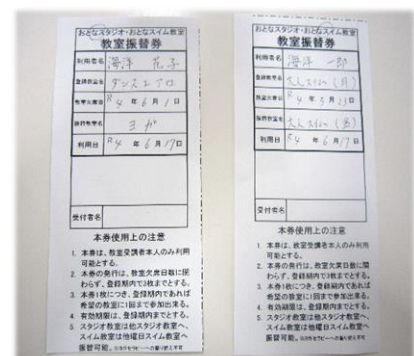 おとなスタジオ・おとなスイム教室
教室振替券
利用者名 海洋 花子
登録教室名 ダンスエアロ
教室欠席日 R4年6月1日
振替教室名 ヨガ
利用日 R4年6月17日
受付者名
本券使用上の注意
1. 本券は、教室受講者本人のみ利用
可能とする。
2. 本券の発行は、教室欠席日数に関
わらず、登録期内で3枚までとする。
3. 本券1枚につき、登録期内であれば
希望の教室に1回まで参加出来る。
4. 有効期限は、登録期内までとする。
5. スタジオ教室は他スタジオ教室へ、
スイム教室は他曜日スイム教室へ
振替可能。
おとなスタジオ・おとなスイム教室
教室振替券
利用者名 海洋 一郎
登録教室名 大人スイム(月)
教室欠席日 R4年5月23日
振替教室名 大人スイム(金)
利用日 R4年6月17日
受付者名
本券使用上の注意
1. 本券は、教室受講者本人のみ利用
可能とする。
2. 本券の発行は、教室欠席日数に関
わらず、登録期内で3枚までとする。
3. 本券1枚につき、登録期内であれば
希望の教室に1回まで参加出来る。
4. 有効期限は、登録期内までとする。
5. スタジオ教室は他スタジオ教室へ、
スイム教室は他曜日スイム教室へ
振替可能。